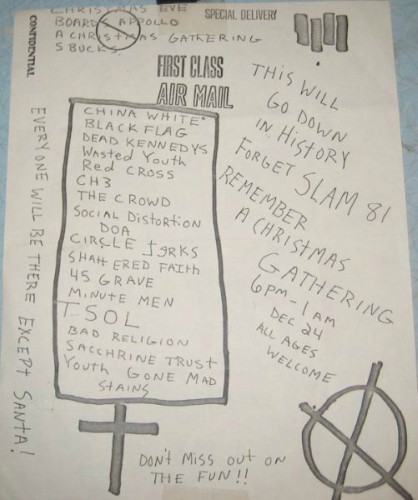 CHRISTMAS EVE
BOARDS APPOLLO
A CHRISTMAS GATHERING
5 BUCKS
SPECIAL DELIVERY
CONFIDENTIAL
FIRST CLASS
AIR MAIL
CHINA WHITE
BLACK FLAG
DEAD KENNEDYS
Wasted Youth
Red Cross
CH3
THE CROWD
SOCIAL DISTORTION
DOA
CIRCLE JERKS
SHATTERED FAITH
45 GRAVE
MINUTE MEN
TSOL
BAD RELIGION
SACCHRINE TRUST
Youth GONE MAD
STAINS
THIS WILL
GO DOWN
IN HISTORY
FORGET SLAM 81
REMEMBER
A CHRISTMAS
GATHERING
6PM-1AM
DEC 24
ALL AGES
WELCOME
EVERYONE WILL BE THERE EXCEPT SANTA!
DON'T MISS OUT ON
THE FUN!!